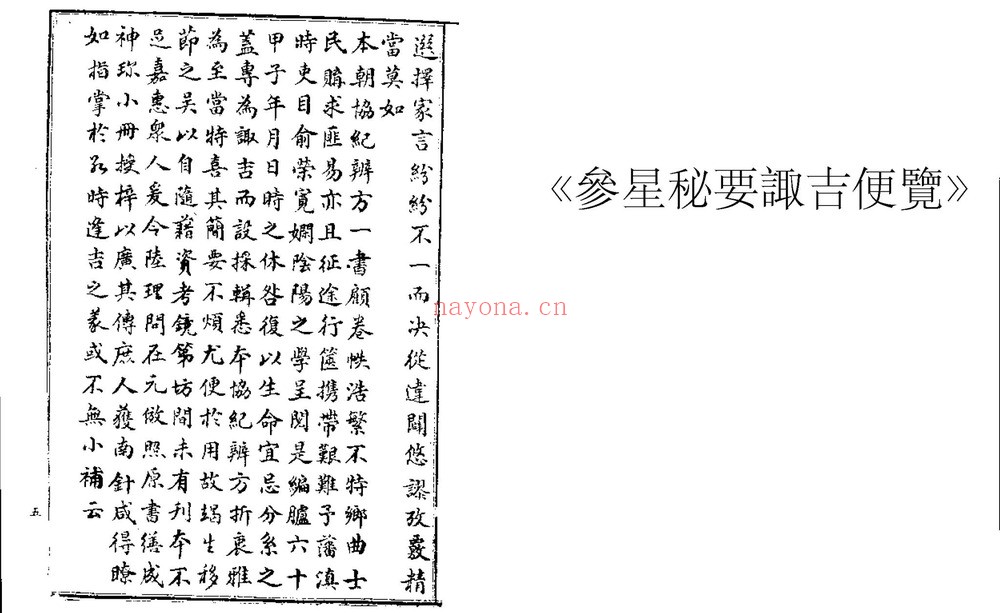 選擇家言紛紛不一而決從違闢悠謬攷覈精
當莫如
本朝協紀辨方一書顧卷帙浩繁不特鄉曲士
民購求匪易亦且征途行篋携帶艱難予藩滇
時吏目俞榮寬嫻陰陽之學呈閱是編臚六十
甲子年月日時之休咎復以生命宜忌分系之
蓋專為諏吉而設採輯悉本協紀辨方折衷雅
為至當特喜其簡要不煩尤便於用故竭生移
節之吴以自隨藉資考鏡第坊間未有刊本不
足嘉惠衆人爰令陸理問在元倣照原書繕成
神珎小冊授梓以廣其傳庶人人獲南針咸得瞭
如指掌於敬時逢吉之義或不無小補云
五
《參星秘要諏吉便覽》
nayona.cn